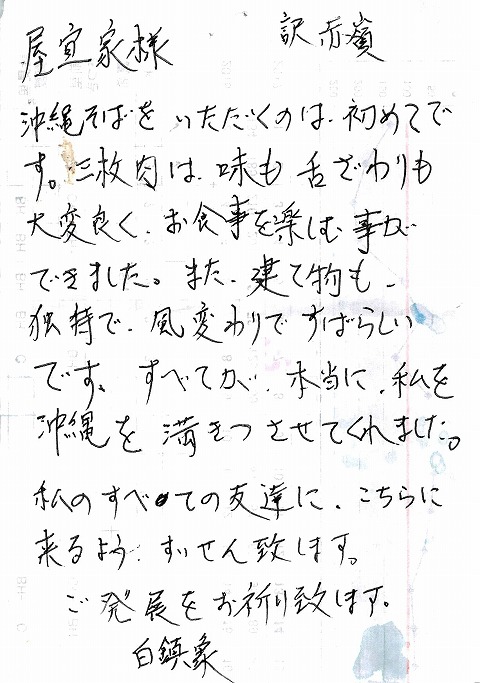 屋宜家様
訳 赤嶺
沖縄そばを いただくのは、初めてで
す。三枚肉は、味も 舌ざわりも
大変良く、お食事を楽しむ事が
できました。また、建て物も、
独特で、風変わりですばらしい
です。すべてが、本当に、私を
沖縄を 満きつさせてくれました。
私のすべての友達に、こちらに
来るよう、すいせん致します。
ご発展をお祈り致します。
白鎮象